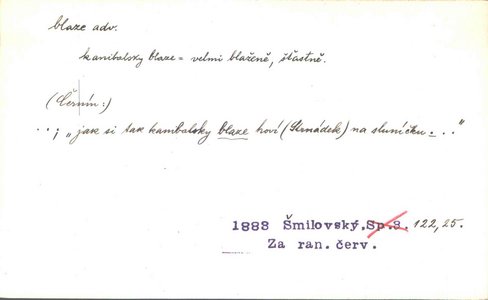 blaze adv.
kanibalsky blaze = velmi blaženě, šťastně.
(Černín:)
..; „jak si tak kanibalsky blaze hoví (Strnádek) na sluníčku...“
1883 Šmilovský, Sp.3. 122, 25.
Za ran. červ.